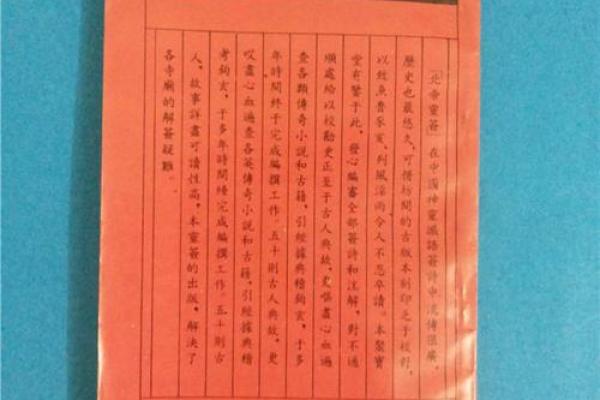 「北帝靈簽」在中國神靈讖語簽詩中流傳最廣，
歷史也最悠久，可惜坊間的古版本刻印乏于校對，
以致魚魯豕亥、列風淫雨令人不忍卒讀。本聚寶
堂有鑒于此，發心編審全部簽詩和注解，對不通
順處給以校勘更正至于古人典故，更嘔盡心血遍
查各類傳奇小說和古籍，引經據典稽鉤玄，于多
年時間終于完成編撰工作。五十則古人典故，更
盡心血遍查各英傳奇小說和古籍，引經據典稽
考鉤玄，于多年時間完成編撰工作。五十則古
人，故事詳盡可讀性高，本靈簽的出版，解決了
各寺廟的解簽疑難。